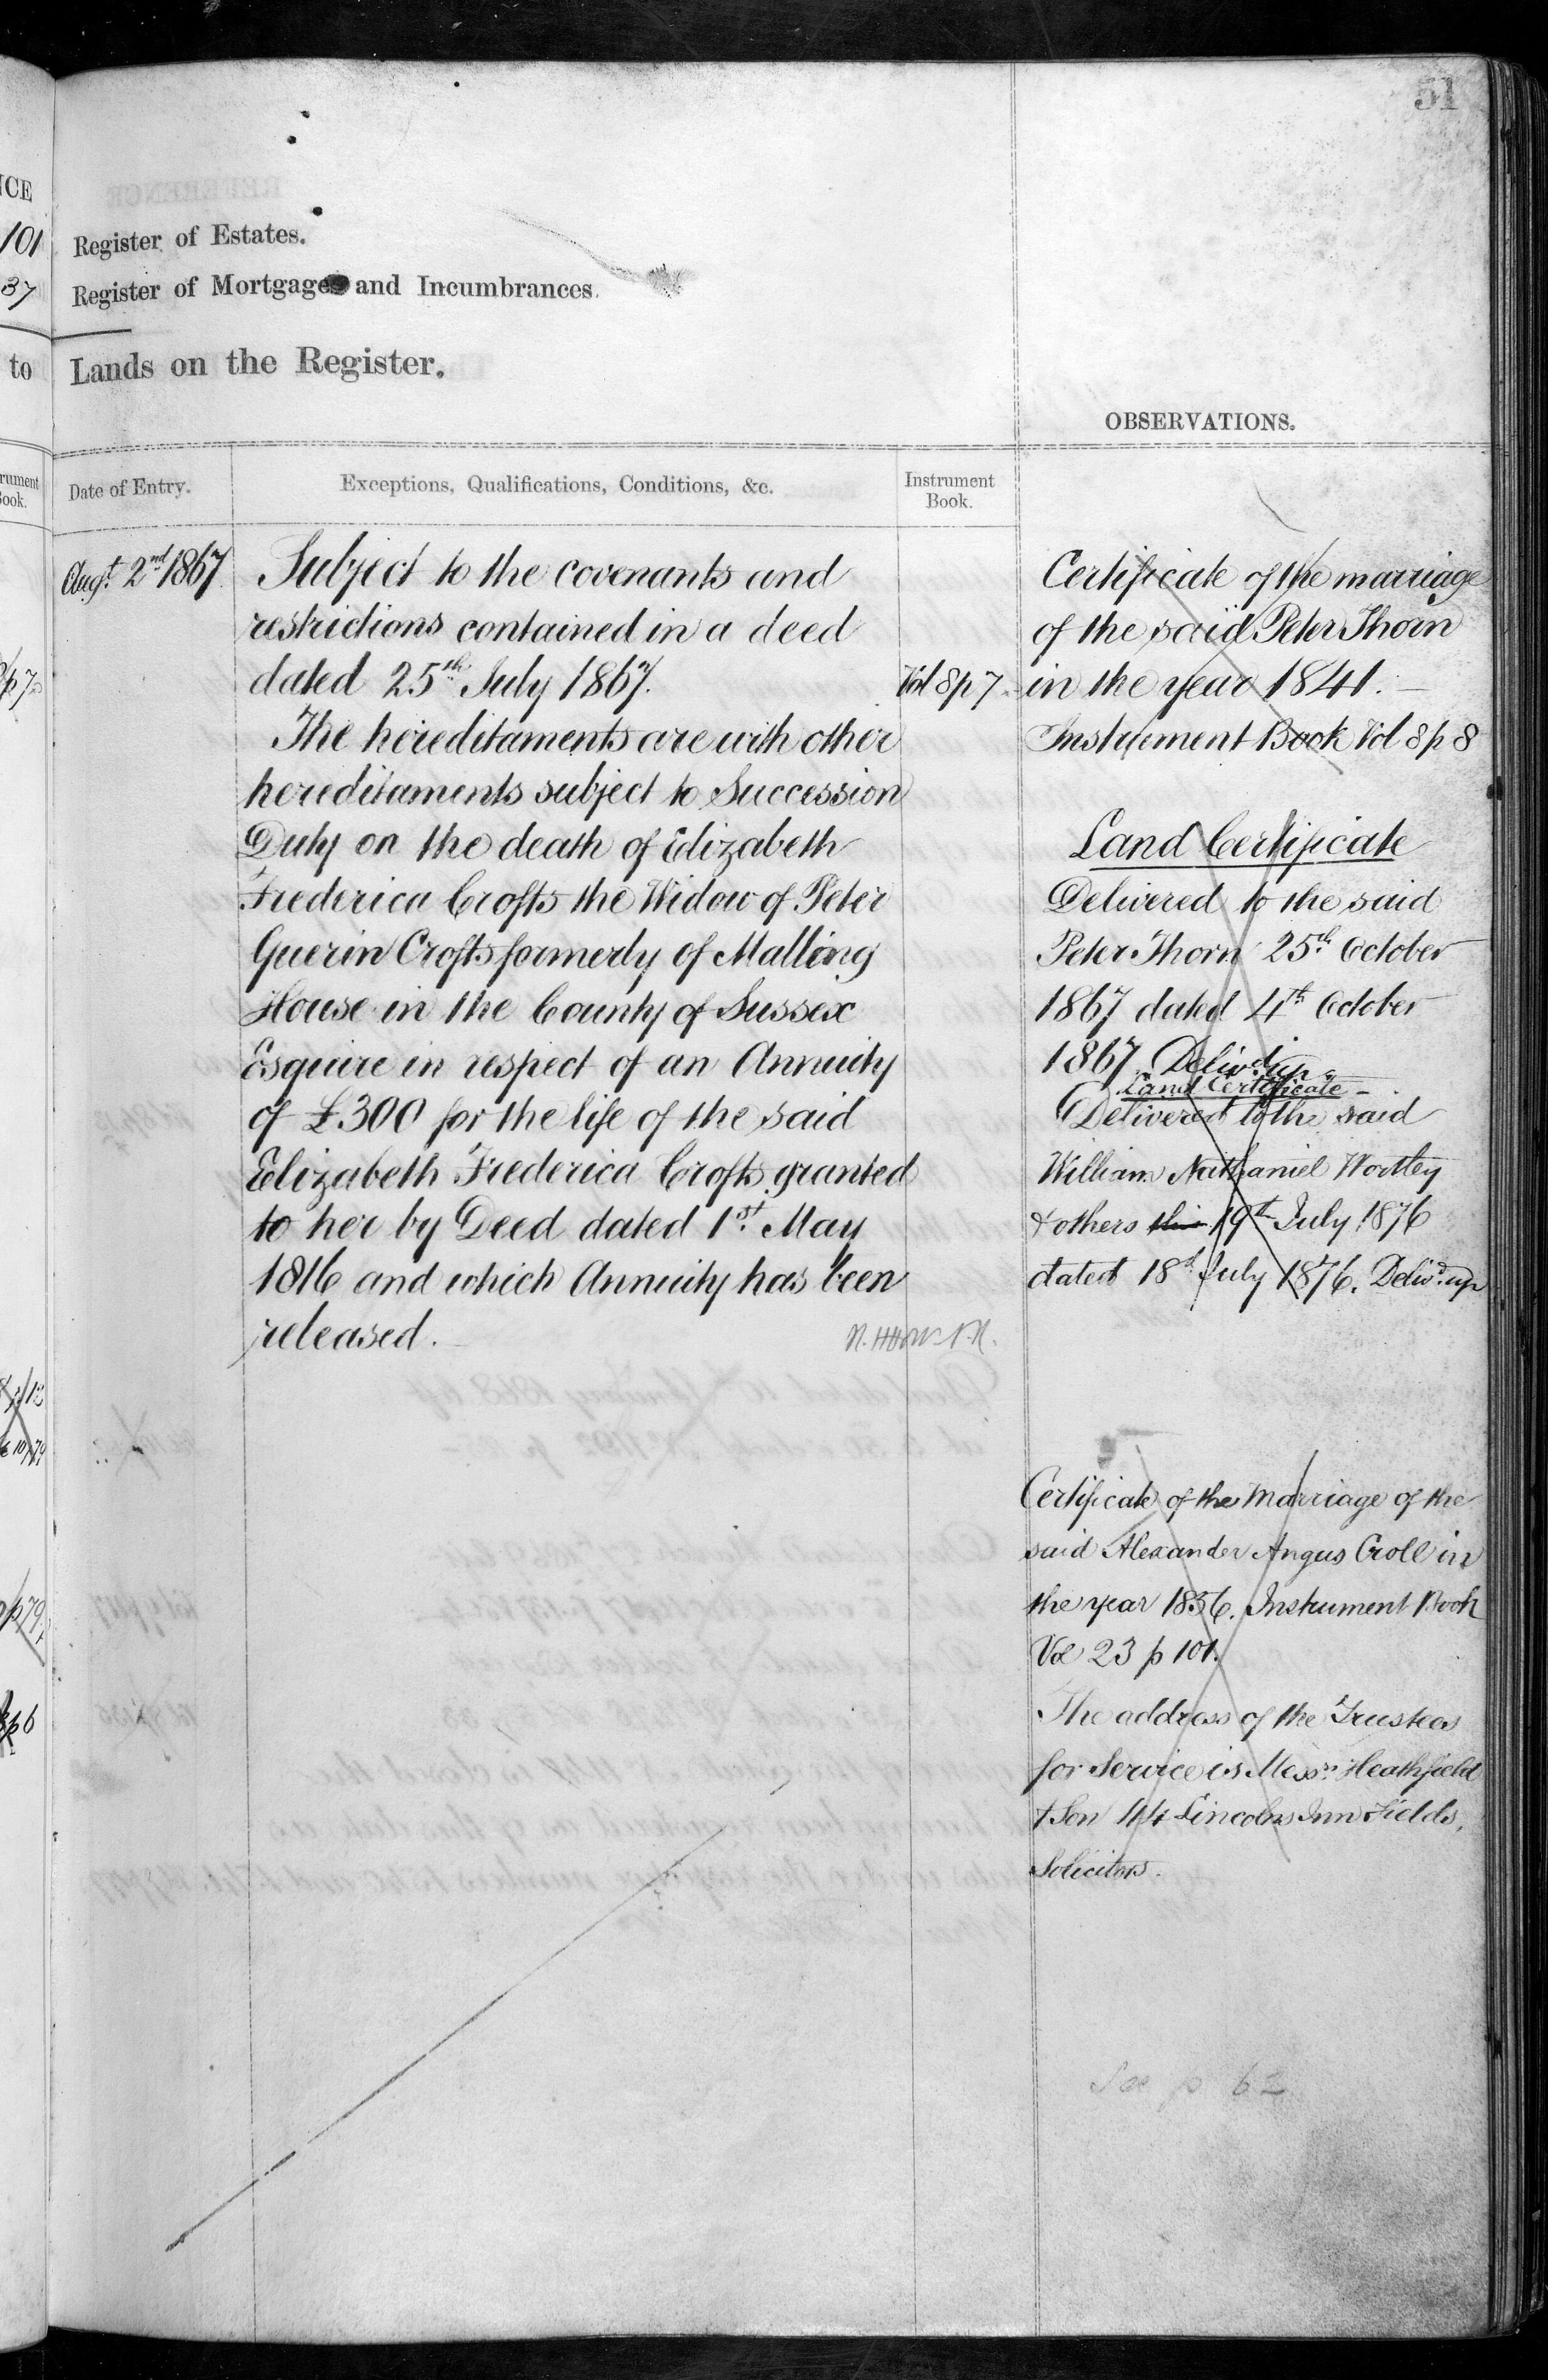 51
Register of Estates.
Register of Mortgages and Incumbrances.
Lands on the Register.
OBSERVATIONS.
Date of Entry.
Exceptions, Qualifications, Conditions, &c.
Instrument
Book.
Augt. 2nd 1867
Subject to the covenants and
restrictions contained in a deed
dated 25th July 1867.
Vol 8 p 7
The hereditaments are with other
hereditaments subject to Succession
Duty on the death of Elizabeth
Frederica Crofts the Widow of Peter
Guerin Crofts formerly of Malling
House in the County of Sussex
Esquire in respect of an Annuity
of £300 for the life of the said
Elizabeth Frederica Crofts granted
to her by Deed dated 1st. May
1816 and which Annuity has been
released.
Certificate of the marriage
of the said Peter Thorn
in the year 1841.
Instrument Book Vol 8 p 8
Land Certificate
Delivered to the said
Peter Thorn 25th October
1867 dated 4th October
1867 Delivd. up
Land Certificate
Delivered to the said
William Nathaniel Wortley
& others this 19th July 1876
dated 18th July 1876. Delivd. up
Certificate of the Marriage of the
said Alexander Angus Croll in
the year 1856. Instrument Book
Vol 23 p 101.
The address of the Trustees
for Service is Messrs. Heathfield
& Son 44 Lincolns Inn Fields,
Solicitors.
See p 62
101
37
to